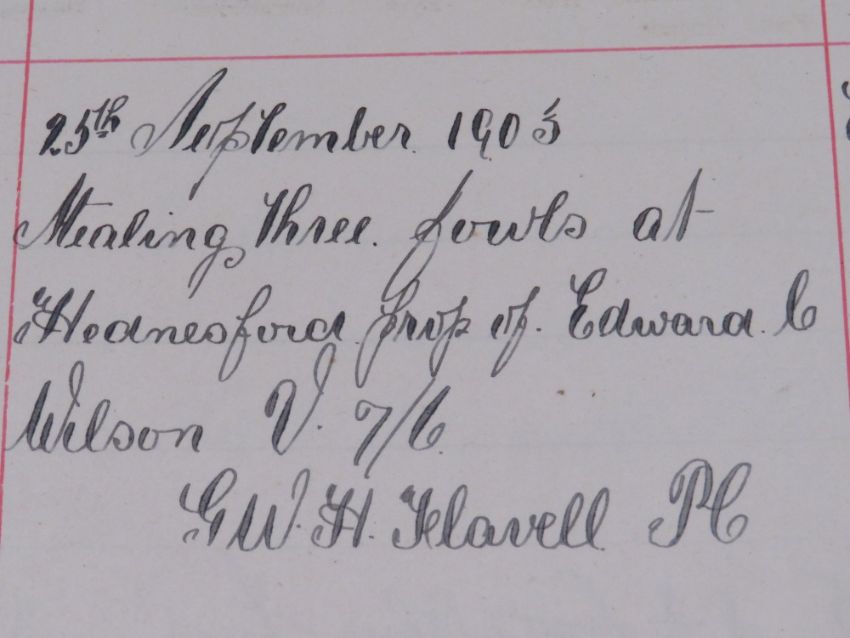 25th September 1905
Stealing three fowls at
Hednesford prop of. Edward. C
Wilson V. 7/6
G W. H. Flavell PC